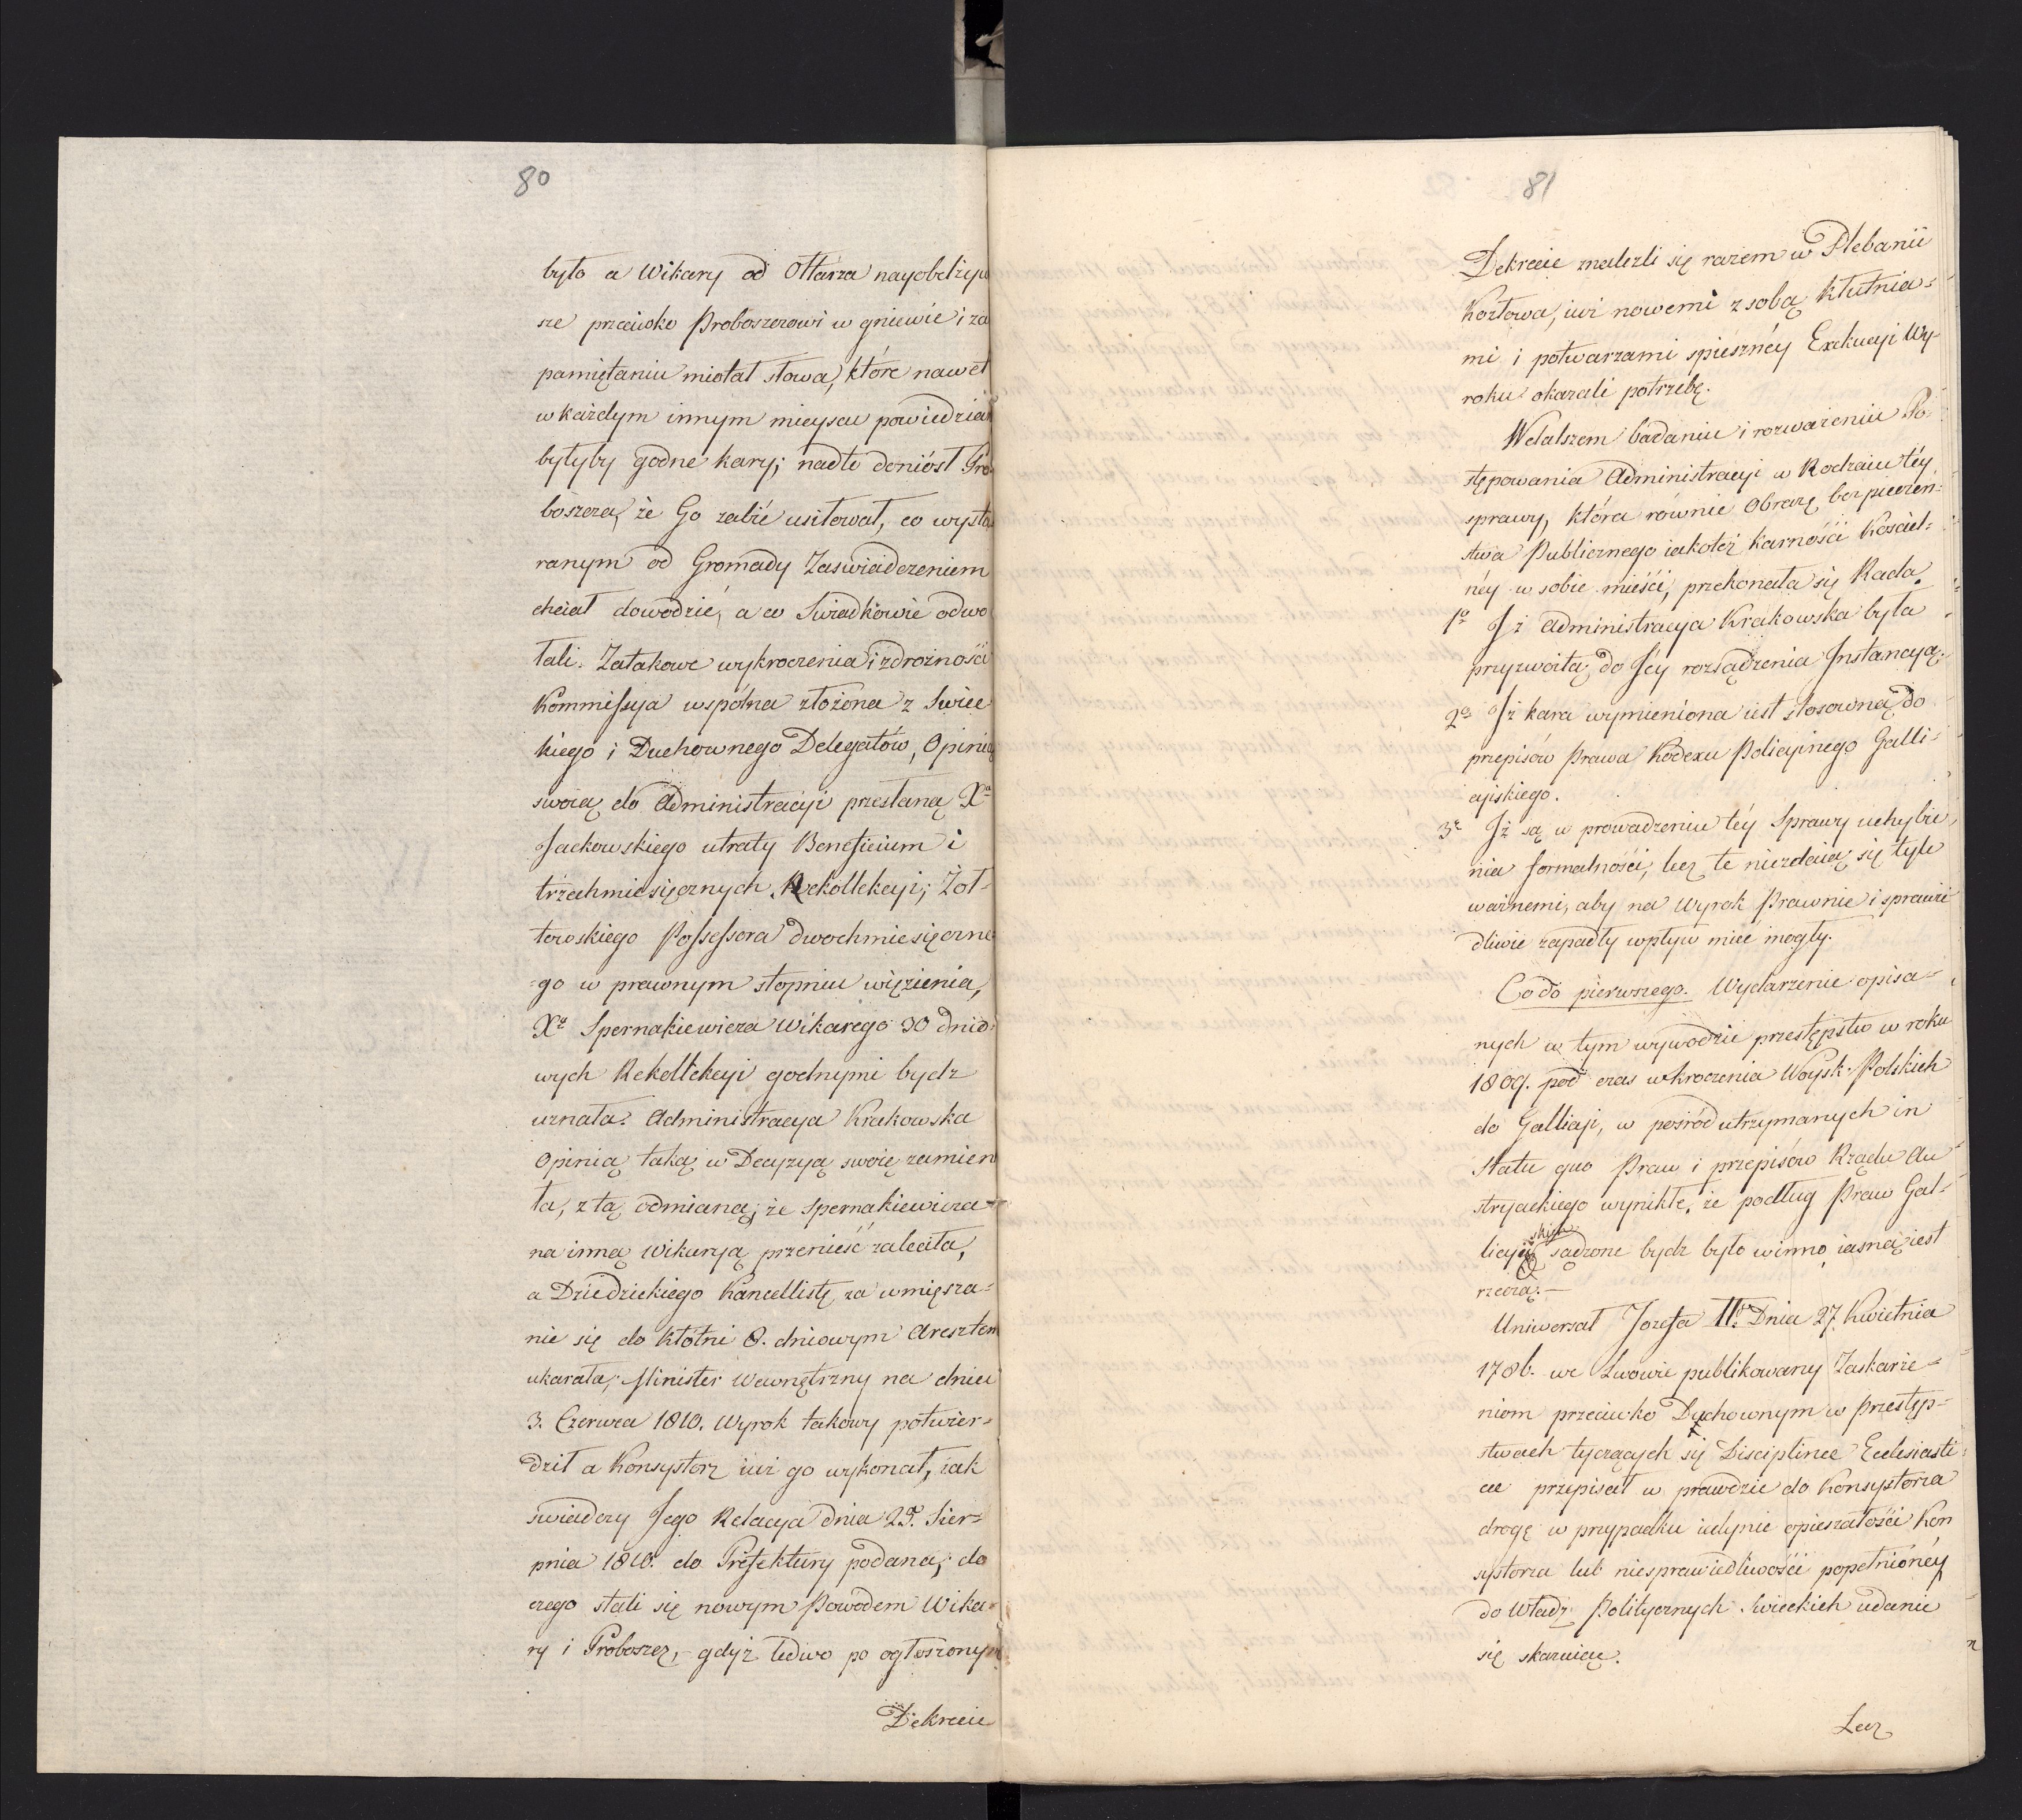 80
było a Wikary od Ołtarza nayobelżyw
sze przeciwko Proboszczowi w gniewie i za
pamiętaniu miotał słowa, które nawet
w każdym innym mieyscu powiedzia
byłyby godne kary; nadto doniósł Pro
boszcza, że Go zabić usiłował, co wysta
ranym od Gromady Zaswiadczeniem
chciał dowodzić, a co Swiadkowie odwo
łali. Zatakowe wykroczenia i zdrożności
Kommissya wspólna złożona z Swiec
kiego i Duchownego Delegatów, Opinią
swoią do Administracyi przesłaną Xa
Jackowskiego utraty Beneficium i
trzechmiesięcznych Rekollekcyi; Żoł-
towskiego Possessora dwochmiesięczne
go w prawnym stopniu więzienia,
Xa Spernakiewicza Wikarego 30 dnio-
wych Rekollekcyi godnymi bydz
uznała. Administracya Krakowska
Opinią taką w Decyzyą swoię zamien
ła, z tą odmianą, że Spernakiewicza
na inną Wikaryą przenieść zaleciła,
a Dziedzickiego Kancellistę za wmięsza-
nie się do kłótni 8. dniowym Aresztem
ukarała; Minister Wewnętrzny na dniu
3. Czerwca 1810. Wyrok takowy potwier-
dził a Konsystorz iuż go wykonał, iak
swiadczy Jego Relacya dnia 25. Sier-
pnia 1810. do Prefektury podana; do
czego stali się nowym Powodem Wika-
ry i Proboszcz, gdyż ledwo po ogłoszonym
Dekrecie
81
Dekrecie znalezli się razem w Plebanii
Kozłowa, iuż nowemi z sobą kłutnia-
mi i potwarzami spieszney Exekucyi Wy-
roku okazali potrzebę.
W dalszem badaniu i rozważeniu Po-
stępowania Administracyi w Rodzaiu téy
sprawy, która równie Obrazę bezpieczen-
stwa Publicznego iakoteż karności Kosciel-
néy w sobie mieści, przekonała się Rada.
1o Iż Administracya Krakowska była
przyzwoitą do Jey rozsądzenia Instancyą.
2o Iż kara wymieniona iest stosowną do
przepisów Prawa Kodexu Policyinego Galli-
cyiskiego.
3o Iż są w prowadzeniu téy Sprawy uchybie
nia formalności, lecz te niezdaią się tyle
ważnemi, aby na Wyrok Prawnie i sprawie
dliwie zapadły wpływ mieć mogły.
Co do pierwszego. Wydarzenie opisa-
nych w tym wywodzie przestępstw w roku
1809. pod czas wkroczenia Woysk Polskich
do Gallicyi, w pośród utrzymanych in
statu quo Praw i przepisów Rządu Au
stryackiego wynikłe, że podług Praw Gal-
licyiskich sądzone bydz było winno, iasną iest
rzeczą.
Uniwersał Jozefa IIo Dnia 27. Kwietnia
1786. we Lwowie publikowany Zaskarże-
niom przeciwko Duchownym w przestęp-
stwach tyczących się Disciplinae Ecclesiasti-
cae przepisał w prawdzie do Konsystorza
drogę w przypadku iedynie opieszałości Kon
systorza lub niesprawiedliwości popełnionéy
do Władz Politycznych Swieckich udanie
się skazuiąc.
Lecz